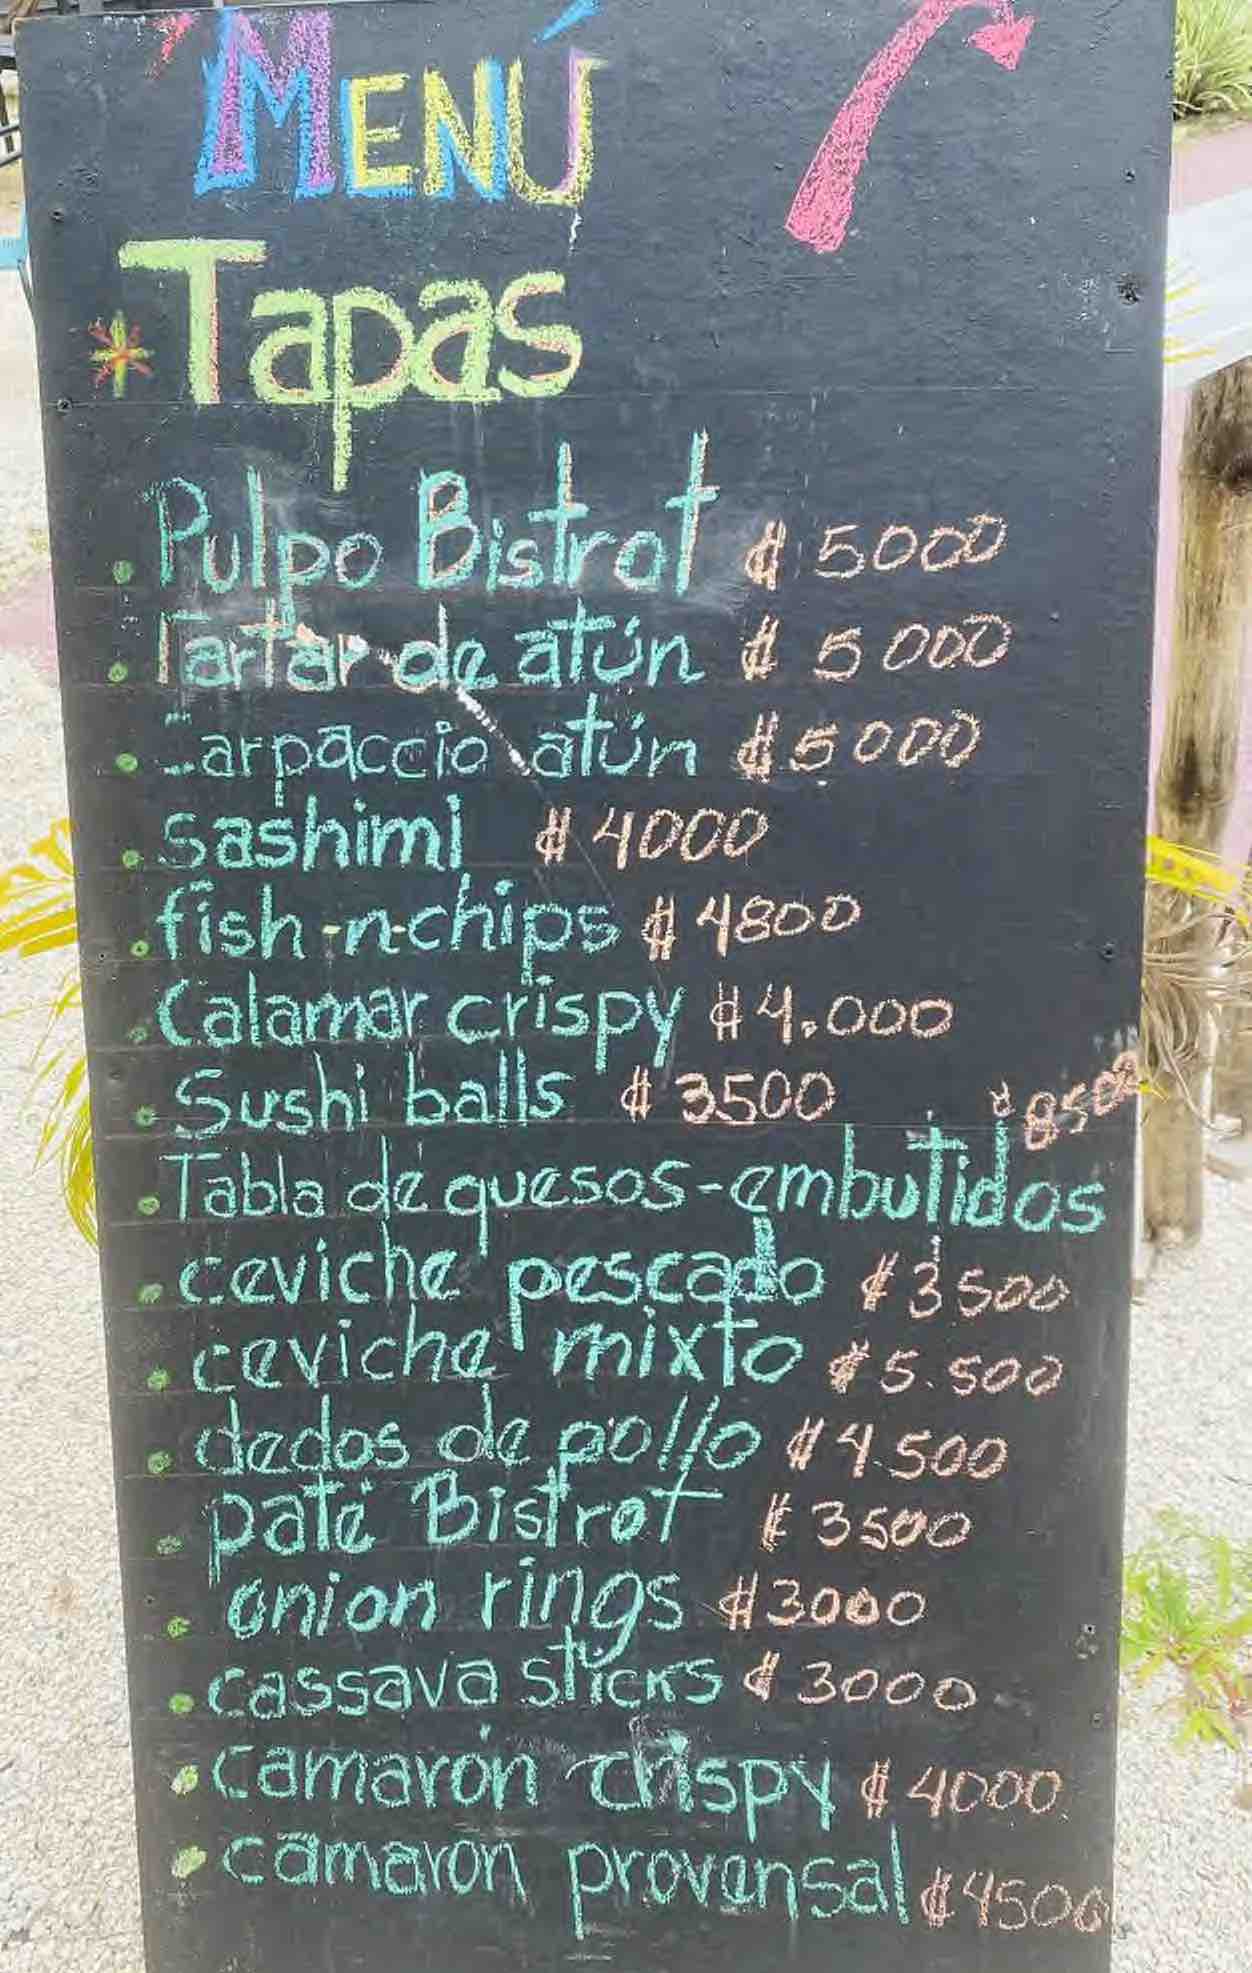 MENÚ
* Tapas
. Pulpo Bistrot ₡ 5000
. Tartar de atún ₡ 5000
. Carpaccio atún ₡ 5000
. sashimi ₡ 4000
. fish-n-chips ₡ 4800
. Calamar crispy ₡ 4.000
. Sushi balls ₡ 3500
₡ 8500
. Tabla de quesos - embutidos
. ceviche pescado ₡ 3500
. ceviche mixto ₡ 5.500
. dedos de pollo ₡ 4.500
. paté Bistrot ₡ 3500
. onion rings ₡ 3000
. cassava sticks ₡ 3000
. camarón crispy ₡ 4000
. camarón provensal ₡ 4500